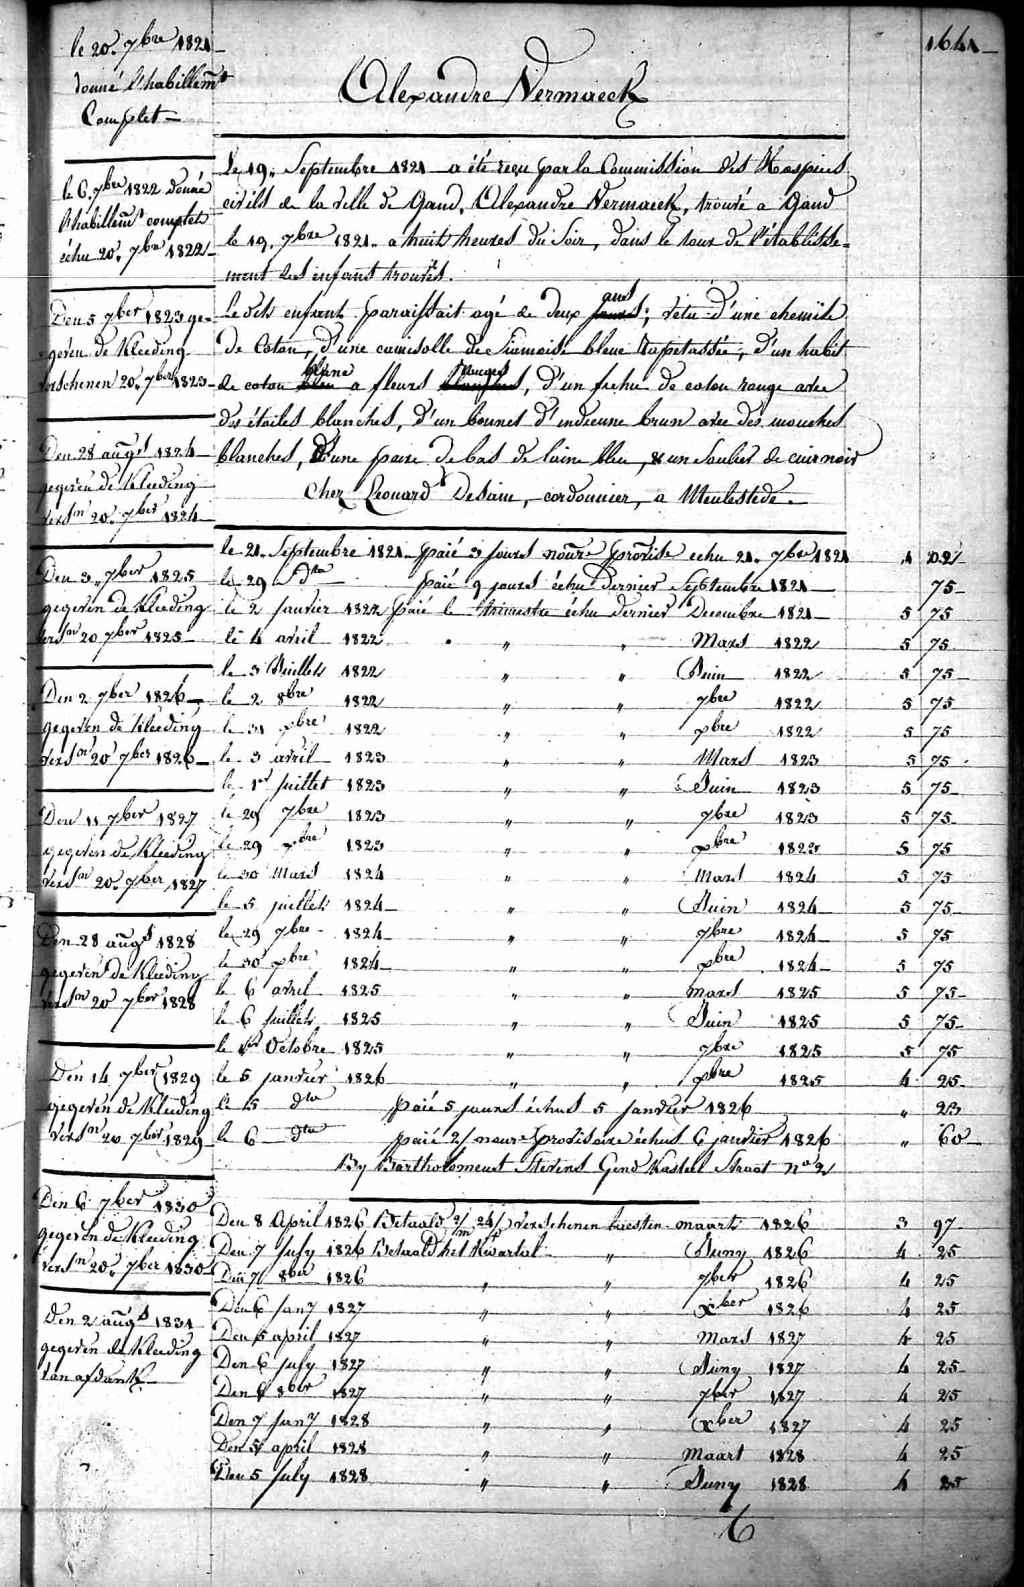 1641
le 20. 7bre 1821
donné l'habillemt
Complet
le 6. 7bre 1822 donné
l'habillemt complet
échu 20. 7bre 1822
Den 5 7ber 1823 ge-
geven de Kleeding
verschenen 20. 7ber 1823
Den 28 augt 1824
gegeven de Kleeding
versn 20. 7ber 1824
Den 3. 7ber 1825
gegeven de Kleeding
versn 20 7ber 1825
Den 2 7ber 1826
gegeven de Kleeding
versn 20 7ber 1826
Den 11 7ber 1827
gegeven de Kleeding
versn 20. 7ber 1827
Den 28 augt 1828
gegeven de Kleeding
versn 20 7ber 1828
Den 14 7ber 1829
gegeven de Kleeding
versn 20 7ber 1829
Den 6 7ber 1830
gegeven de Kleeding
versn 20. 7ber 1830
Den 2 augt 1831
gegeven de Kleeding
van afdank
Alexandre Vermaeck
Le 19. Septembre 1821 a été reçu par la Commission des Hospices
civils de la ville de Gand, Alexandre Vermaeck, trouvé a Gand
le 19. 7bre 1821. a huit heures du Soir, dans le tour de l'établisse-
ment des enfans trouvés.
Le dit enfant paraissait agé de deux ans; vetu d'une chemise
de Coton, d'une camisolle de Siamoise bleue rapetassée, d'un habit
de coton blanc a fleurs rouges, d'un fichu de coton rouge avec
des étoiles blanches, d'un bonnet d'indienne brun avec des mouches
blanches, d'une paire de bas de laine bleu, & un Soulier de cuir noir
Chez Leonard Desaim, cordonnier, a Meulestede.
le 21. Septembre 1821. paié 3 jours nourre provisre echu 21. 7bre 1821 1 02½
le 29 dto paié 9 jours échu dernier Septembre 1821 75
le 2 janvier 1822 paié le trimestre échu dernier Decembre 1821 5 75
le 4 avril 1822 " " " Mars 1822 5 75
le 3 Juillet 1822 " " Juin 1822 5 75
le 2 8bre 1822 " " 7bre 1822 5 75
le 31 xbre 1822 " " xbre 1822 5 75
le 3 avril 1823 " " Mars 1823 5 75
le 1er juillet 1823 " " Juin 1823 5 75
le 29 7bre 1823 " " 7bre 1823 5 75
le 29 xbre 1823 " " xbre 1823 5 75
le 30 Mars 1824 " " Mars 1824 5 75
le 5 juillet 1824 " " Juin 1824 5 75
le 29 7bre 1824 " " 7bre 1824 5 75
le 30 xbre 1824 " " xbre 1824 5 75
le 6 avril 1825 " " mars 1825 5 75
le 6 juillet 1825 " " Juin 1825 5 75
le 1er Octobre 1825 " " 7bre 1825 5 75
le 5 janvier 1826 " " xbre 1825 4 25
le 5 dto paié 5 jours échus 5 janvier 1826 " 23
le 6 dto paié 2/ nourre provisoire échus 6 janvier 1826 " 60
By Bartholomeus Stevens Gend Kasteel Straat No 2
Den 8 April 1826 Betaald 2/m 24/ verschenen laesten maart 1826 3 97
Den 7 July 1826 Betaald het Kwartal " Juny 1826 4 25
Den 7 8ber 1826 " " 7ber 1826 4 25
Den 6 jany 1827 " " xber 1826 4 25
Den 5 april 1827 " " Mars 1827 4 25
Den 6 july 1827 " " Juny 1827 4 25
Den 6 8ber 1827 " " 7ber 1827 4 25
Den 7 jany 1828 " " xber 1827 4 25
Den 5 april 1828 " " maart 1828 4 25
Den 5 July 1828 " " Juny 1828 4 25